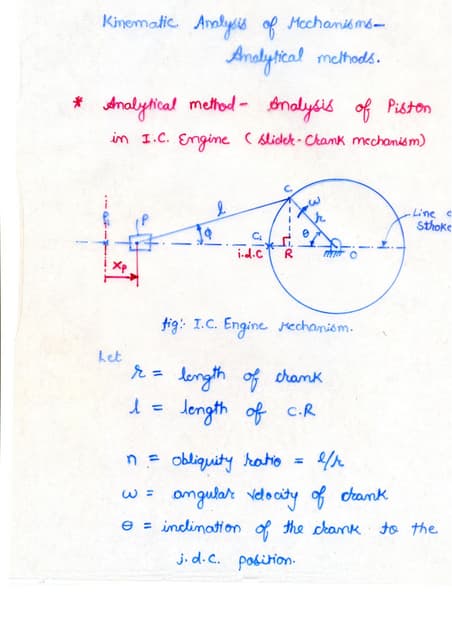 Kinematic Analysis of Mechanisms-
Analytical methods.
* Analytical method - Analysis of Piston
in I.C. Engine (Slider-Crank mechanism)
C
l
ω
r
P₁
P
φ
C₁
θ
Line o
Stroke
i.d.C
R
O
Xp
fig:- I.C. Engine Mechanism.
Let
r = length of crank
l = length of C.R
n = obliquity ratio = l/r
ω = angular velocity of crank
θ = inclination of the crank to the
i.d.c. position.